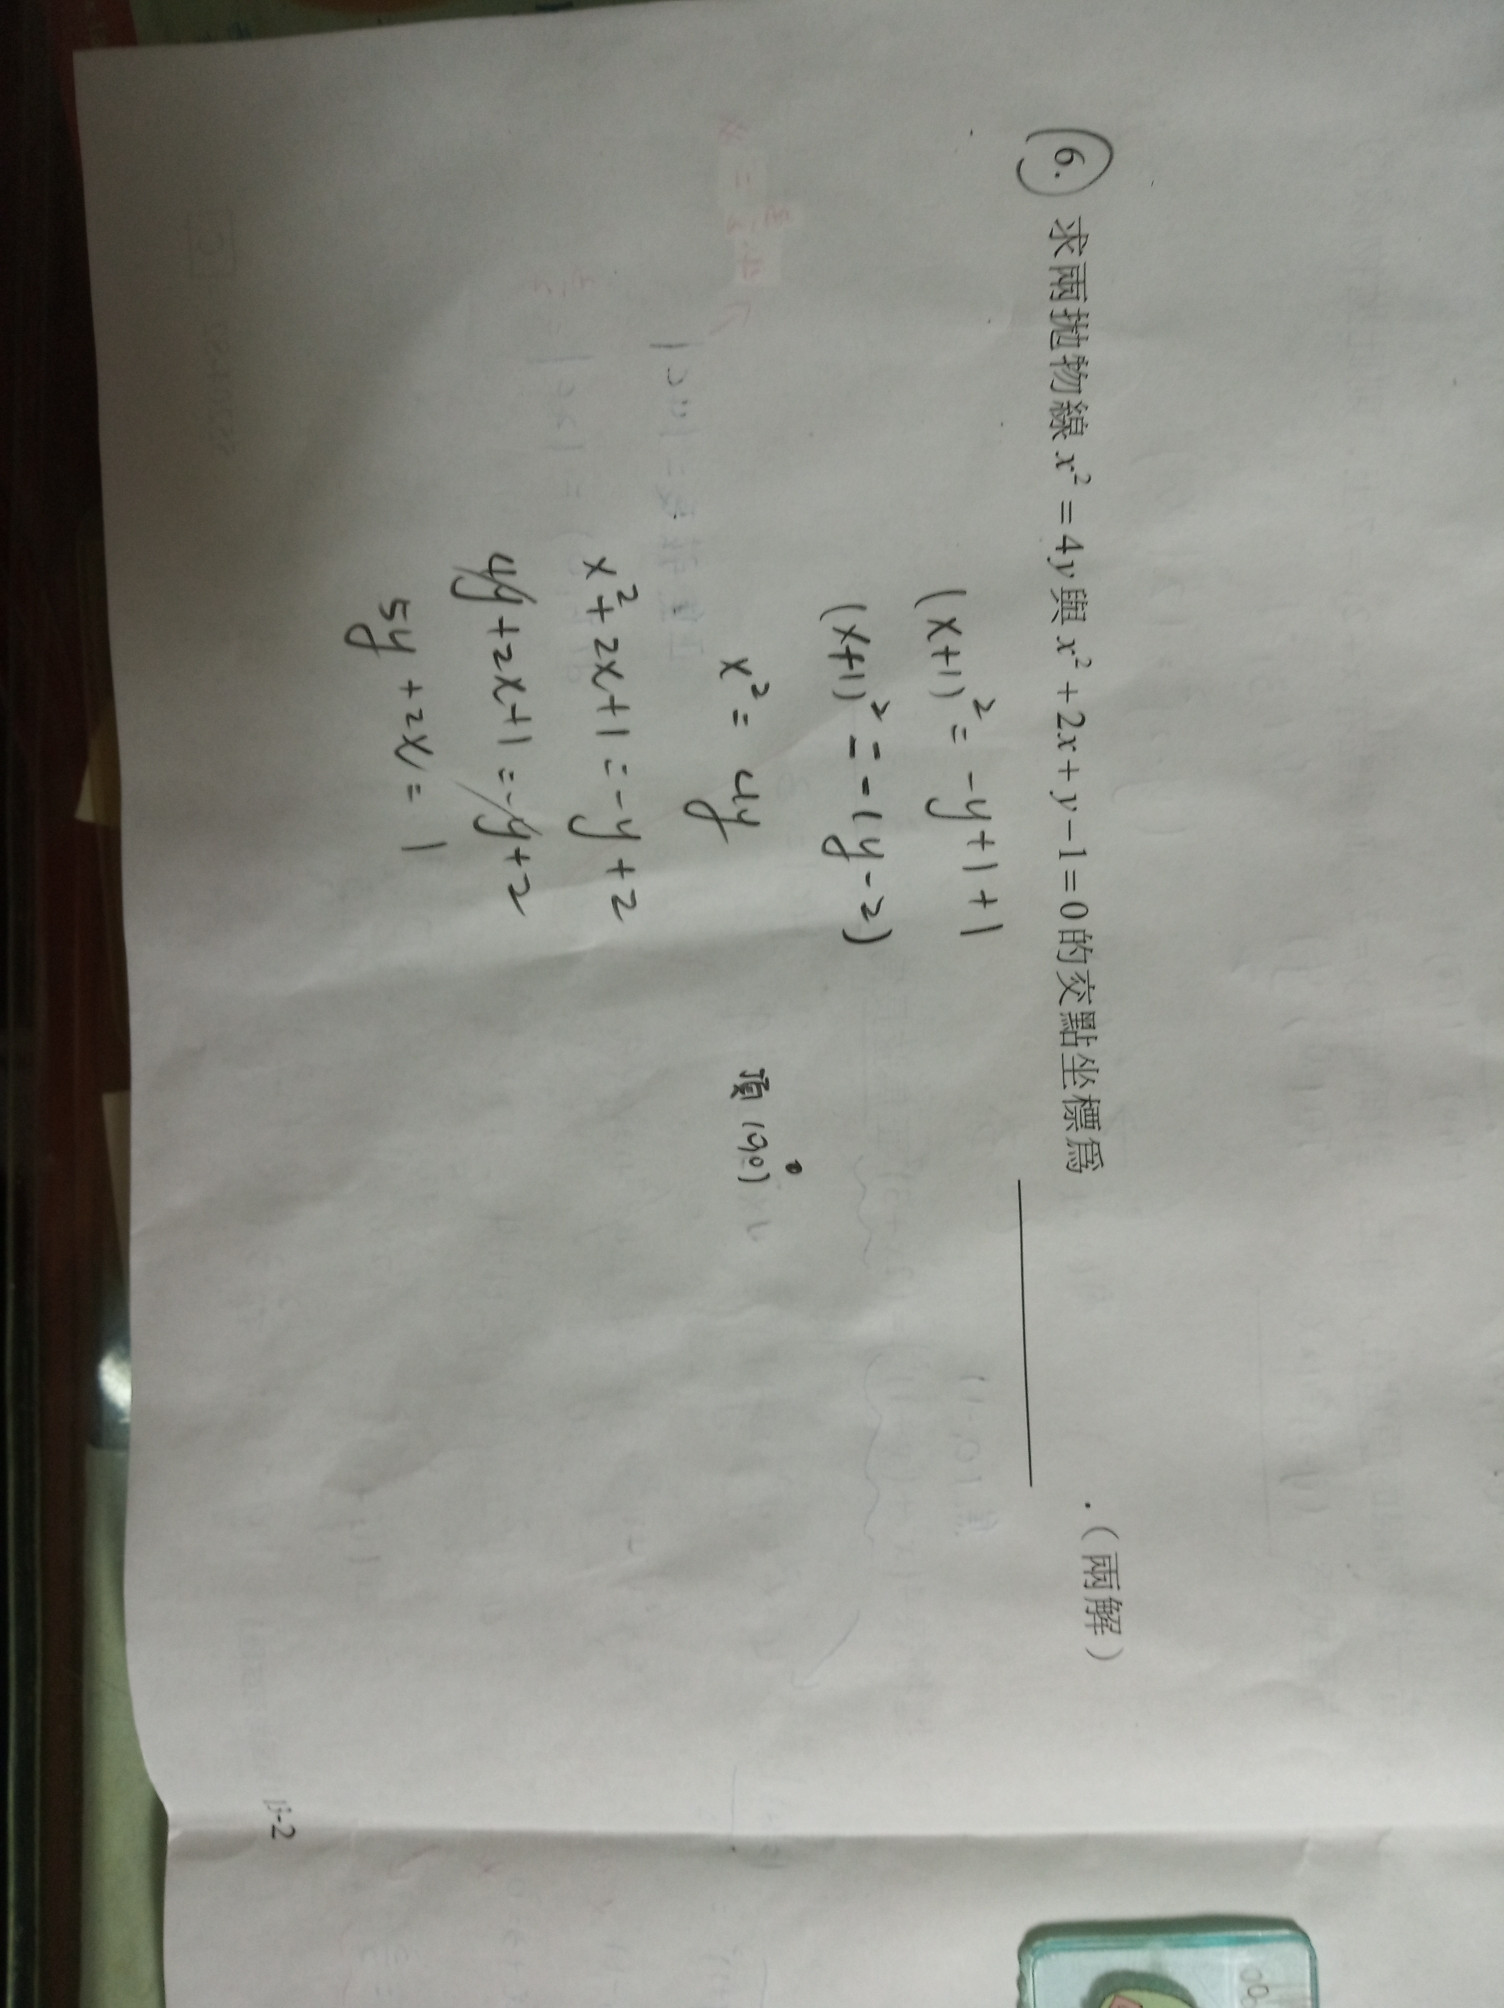 6. 求兩拋物線 x² = 4y 與 x² + 2x + y − 1 = 0 的交點坐標為 ________ .（兩解）
(x+1)² = -y+1+1
(x+1)² = -(y-2)
x² = 4y
頂(0,0)
x²+2x+1 = -y+2
4y+2x+1 = -y+2
5y+2x = 1
13-2